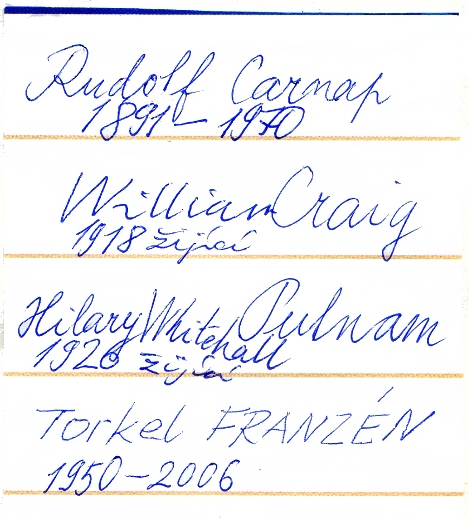 Rudolf Carnap
1891 – 1970
William Craig
1918 žijící
Hilary Whitehall Putnam
1926 žijící
Torkel FRANZÉN
1950 – 2006